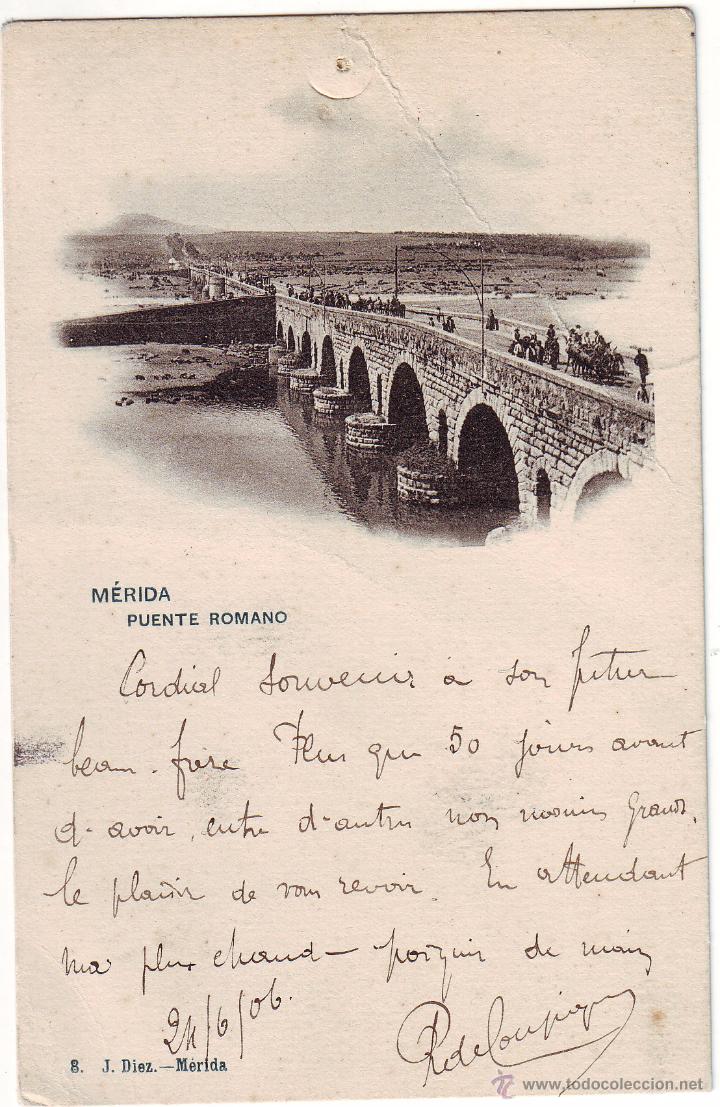 MÉRIDA
PUENTE ROMANO
Cordial souvenir à son futur
beau-frère Plus que 50 jours avant
d'avoir, entre d'autres non moins grands,
le plaisir de vous revoir. En attendant
ma plus chaude poignée de main
24/6/06.
8. J. Diez.—Mérida
www.todocoleccion.net